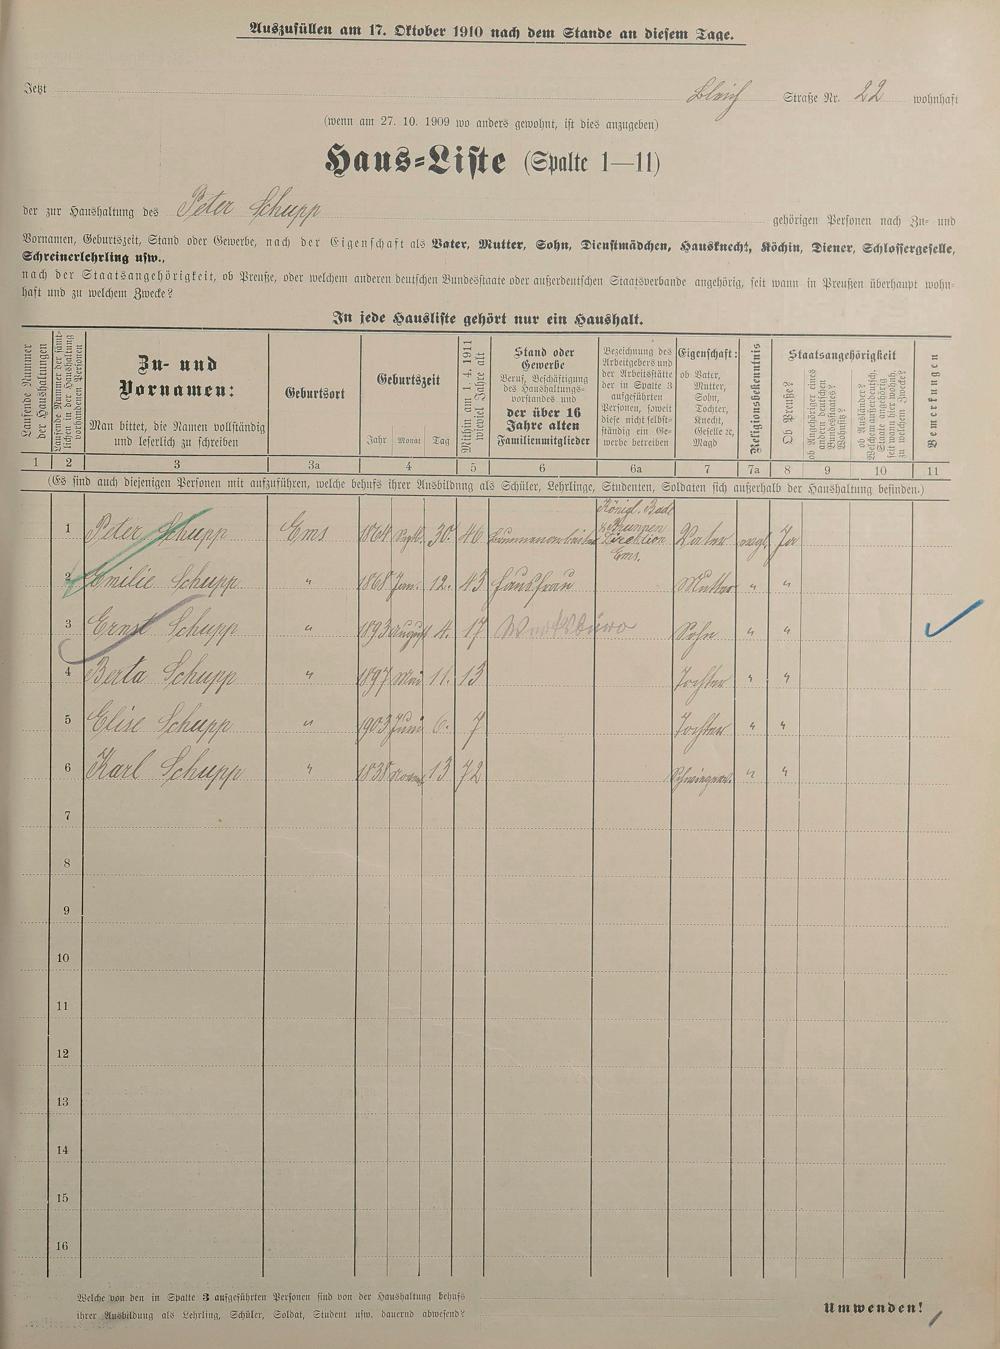 Auszufüllen am 17. Oktober 1910 nach dem Stande an diesem Tage.
Jetzt Bleich Straße Nr. 22 wohnhaft
(wenn am 27. 10. 1909 wo anders gewohnt, ist dies anzugeben)
Haus-Liste (Spalte 1—11)
der zur Haushaltung des Peter Schupp gehörigen Personen nach Zu- und
Vornamen, Geburtszeit, Stand oder Gewerbe, nach der Eigenschaft als Vater, Mutter, Sohn, Dienstmädchen, Hausknecht, Köchin, Diener, Schlossergeselle,
Schreinerlehrling usw.,
nach der Staatsangehörigkeit, ob Preuße, oder welchem anderen deutschen Bundesstaate oder außerdeutschen Staatsverbande angehörig, seit wann in Preußen überhaupt wohn-
haft und zu welchem Zwecke?
In jede Hausliste gehört nur ein Haushalt.
Laufende Nummer
der Haushaltungen
Laufende Nummer der sämt-
lichen in der Haushaltung
vorhandenen Personen
Zu- und
Vornamen:
Man bittet, die Namen vollständig
und leserlich zu schreiben
Geburtsort
Geburtszeit
Jahr Monat Tag
Mithin am 1. 4. 1911
wieviel Jahre alt
Stand oder
Gewerbe
Beruf, Beschäftigung
des Haushaltungs-
vorstandes und
der über 16
Jahre alten
Familienmitglieder
Bezeichnung des
Arbeitgebers und
der Arbeitsstätte
der in Spalte 3
aufgeführten
Personen, soweit
diese nicht selbst-
ständig ein Ge-
werbe betreiben
Eigenschaft:
ob Vater,
Mutter,
Sohn,
Tochter,
Knecht,
Geselle ec,
Magd
Religionsbekenntnis
Staatsangehörigkeit
Ob Preuße?
ob Angehöriger eines
andern deutschen
Bundesstaates?
Wohnsitz?
ob Ausländer?
Welchem außerdeutsch.
Staate angehörig,
seit wann hier wohnh.
zu welchem Zwecke?
Bemerkungen
1 2 3 3a 4 5 6 6a 7 7a 8 9 10 11
(Es sind auch diejenigen Personen mit aufzuführen, welche behufs ihrer Ausbildung als Schüler, Lehrlinge, Studenten, Soldaten sich außerhalb der Haushaltung befinden.)
1 Peter Schupp Ems 1864 30. 46 Königl. Bade
Brunnen
Direktion
Ems. Vater evgl. Ja
2 Emilie Schupp " 1868 Jan. 12. 43 Hausfrau Mutter " "
3 Ernst Schupp " 1893 August 4. 17 Sohn " "
4 Berta Schupp " 1897 Mai 11. 13 Tochter " "
5 Elise Schupp " 1903 Juni 6. 7 Tochter " "
6 Karl Schupp " 1838 13 72 " "
7
8
9
10
11
12
13
14
15
16
Welche von den in Spalte 3 aufgeführten Personen sind von der Haushaltung behufs
ihrer Ausbildung als Lehrling, Schüler, Soldat, Student usw. dauernd abwesend?
Umwenden!